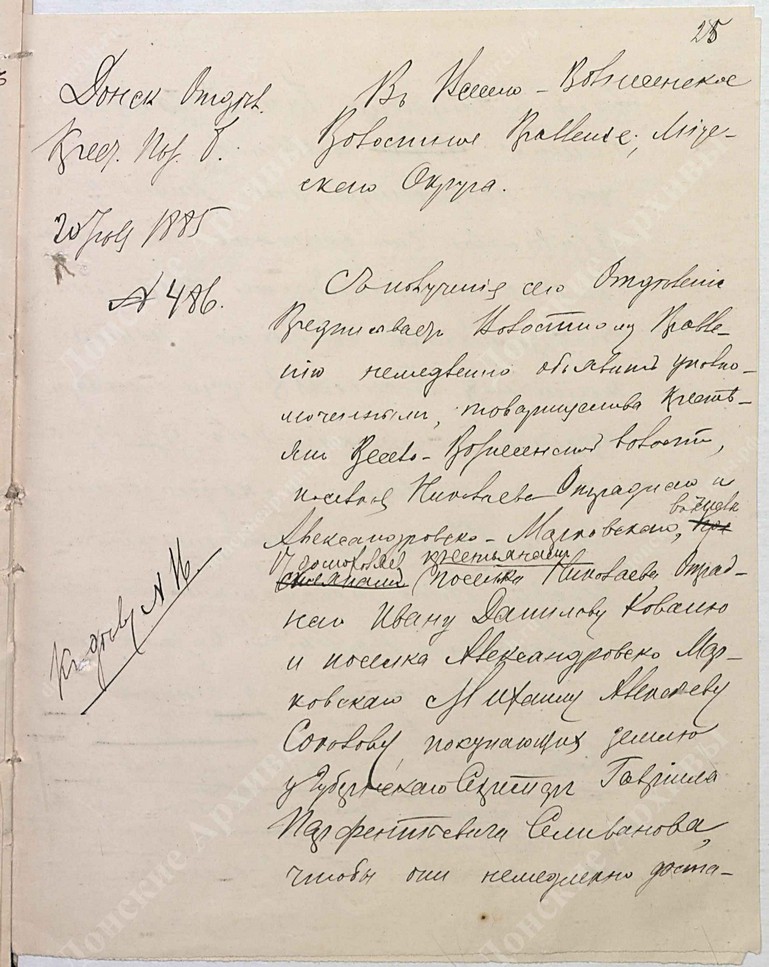 25
Донск Отдѣл.
Крест. Поз. Б.
20 Юля 1885
№ 486.
Къ дѣлу № 16.
Въ Весело-Вознесенское
Волостное Правленіе, Міус-
скаго Округа.
Съ полученія сего Отдѣленіе
Предписываетъ Волостному Правле-
нію немедленно объявить уполно-
моченнымъ, товарищества Кресть-
янъ Весело-Вознесенской волости,
поселка Николаево Отраднаго и
Александровско-Марковскаго,
крестьянами
(поселка Николаево Отрад-
наго Ивану Данилову Ковалю
и поселка Александровско Мар-
ковскаго Михаилу Алексѣеву
Соловову покупающихъ землю
у Губернскаго Секретаря Гавріила
Парфентьевича Селиванова,
чтобы они немедленно доста-